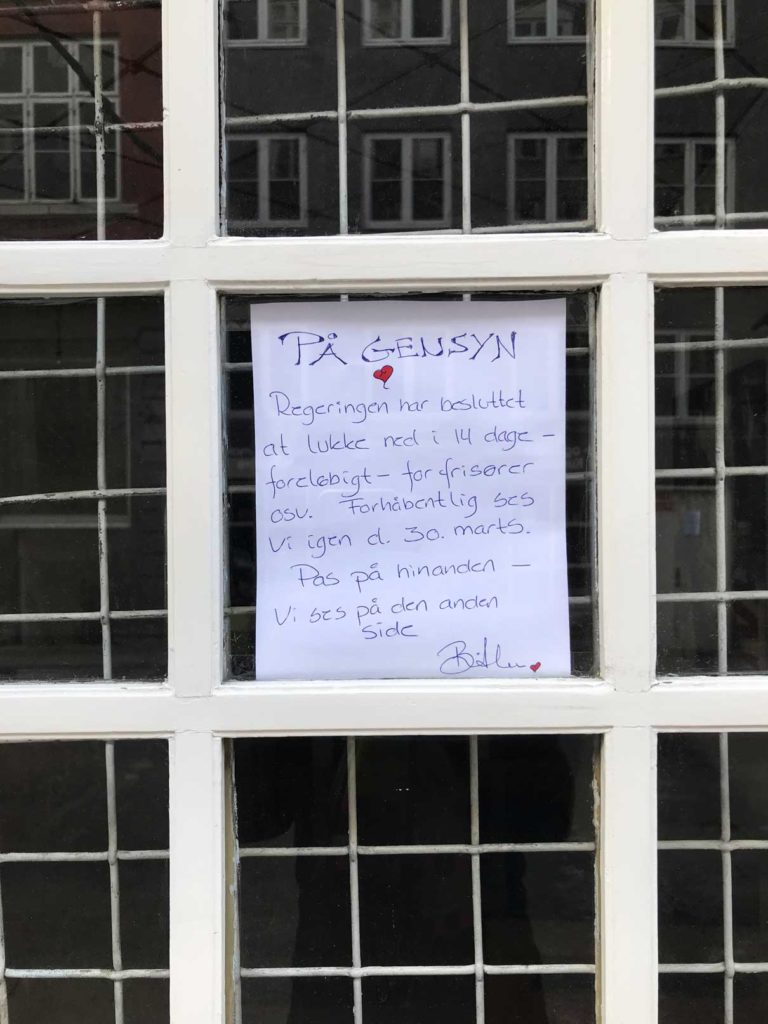 PÅ GENSYN
Regeringen har besluttet
at lukke ned i 14 dage –
foreløbigt – for frisører
osv. Forhåbentlig ses
vi igen d. 30. marts.
Pas på hinanden –
Vi ses på den anden
side